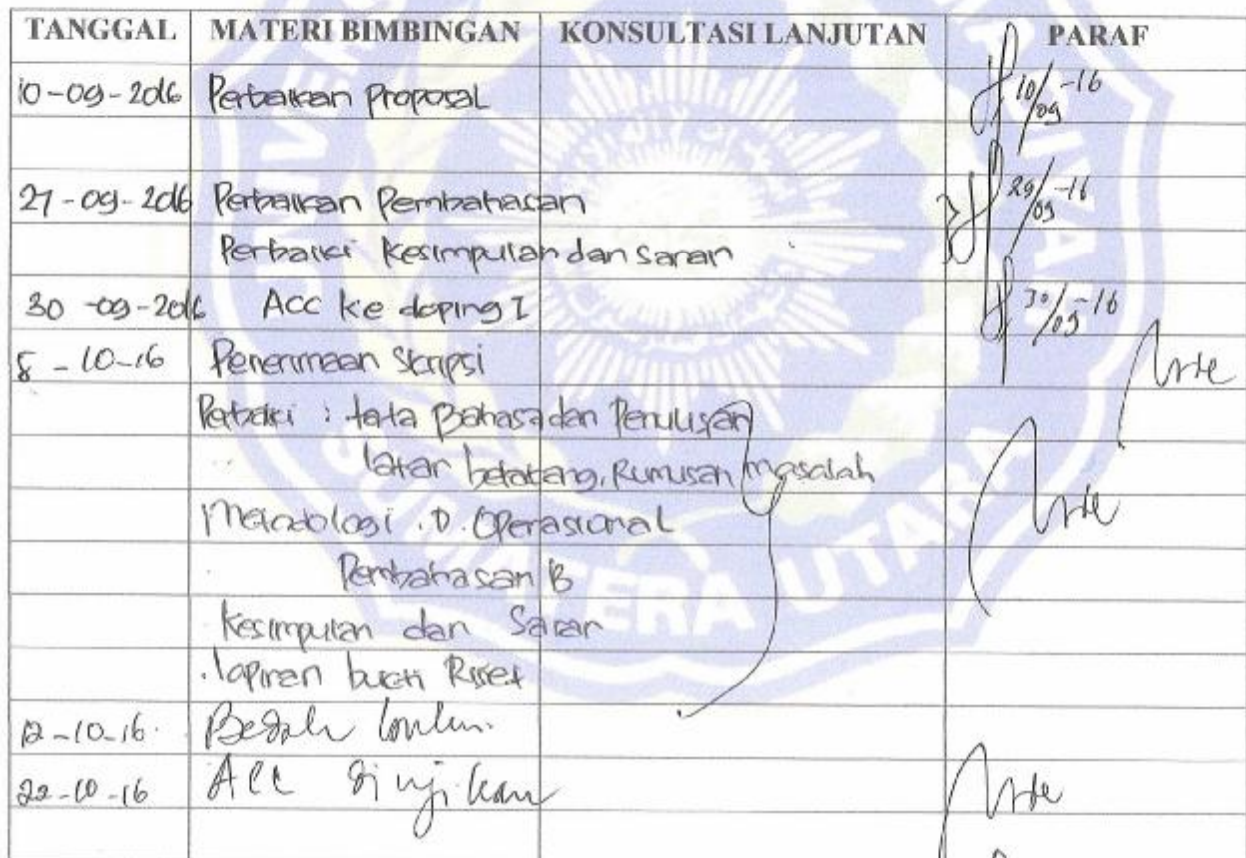 TANGGAL MATERI BIMBINGAN KONSULTASI LANJUTAN PARAF
10-09-2016 Perbaikan Proposal 10/09-16
27-09-2016 Perbaikan Pembahasan 29/09-16
Perbaiki Kesimpulan dan Saran
30-09-2016 ACC ke doping I 30/09-16
8-10-16 Penerimaan Skripsi
Perbaiki : tata Bahasa dan Penulisan
latar belakang, Rumusan masalah
Metodologi . D. Operasional
Pembahasan B
Kesimpulan dan Saran
lapiran bukti Riset
12-10-16. Bedah
22-10-16 ACC diujikan
SUMATERA UTARA